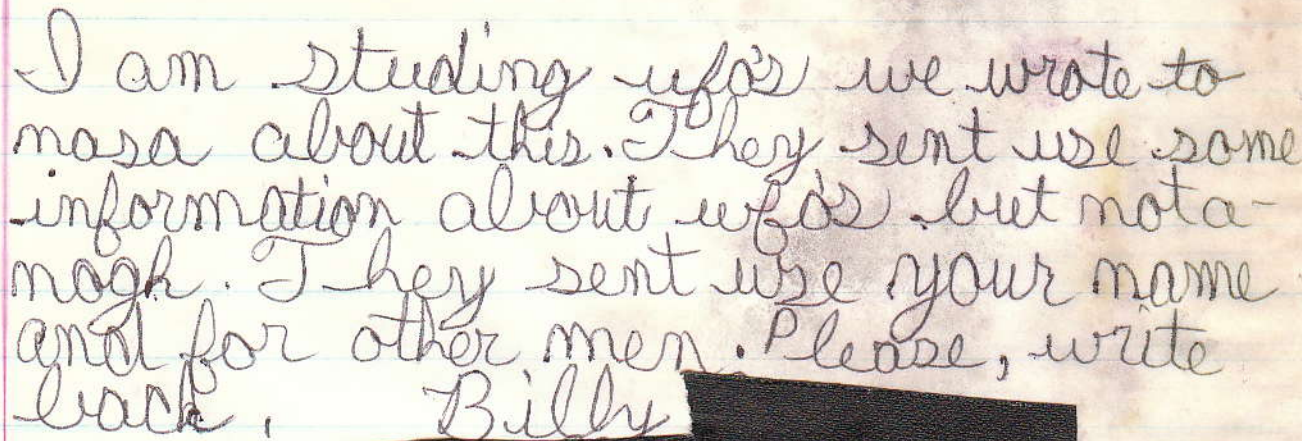 I am studing ufo's we wrote to
nasa about this. They sent use some
information about ufo's but not a-
nogh. They sent use your name
and for other men. Please, write
back. Billy